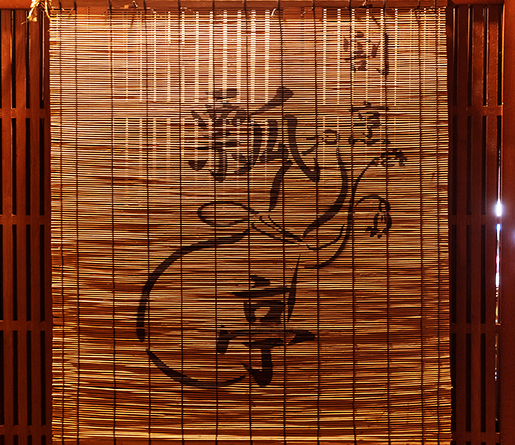 割烹
瓢亭